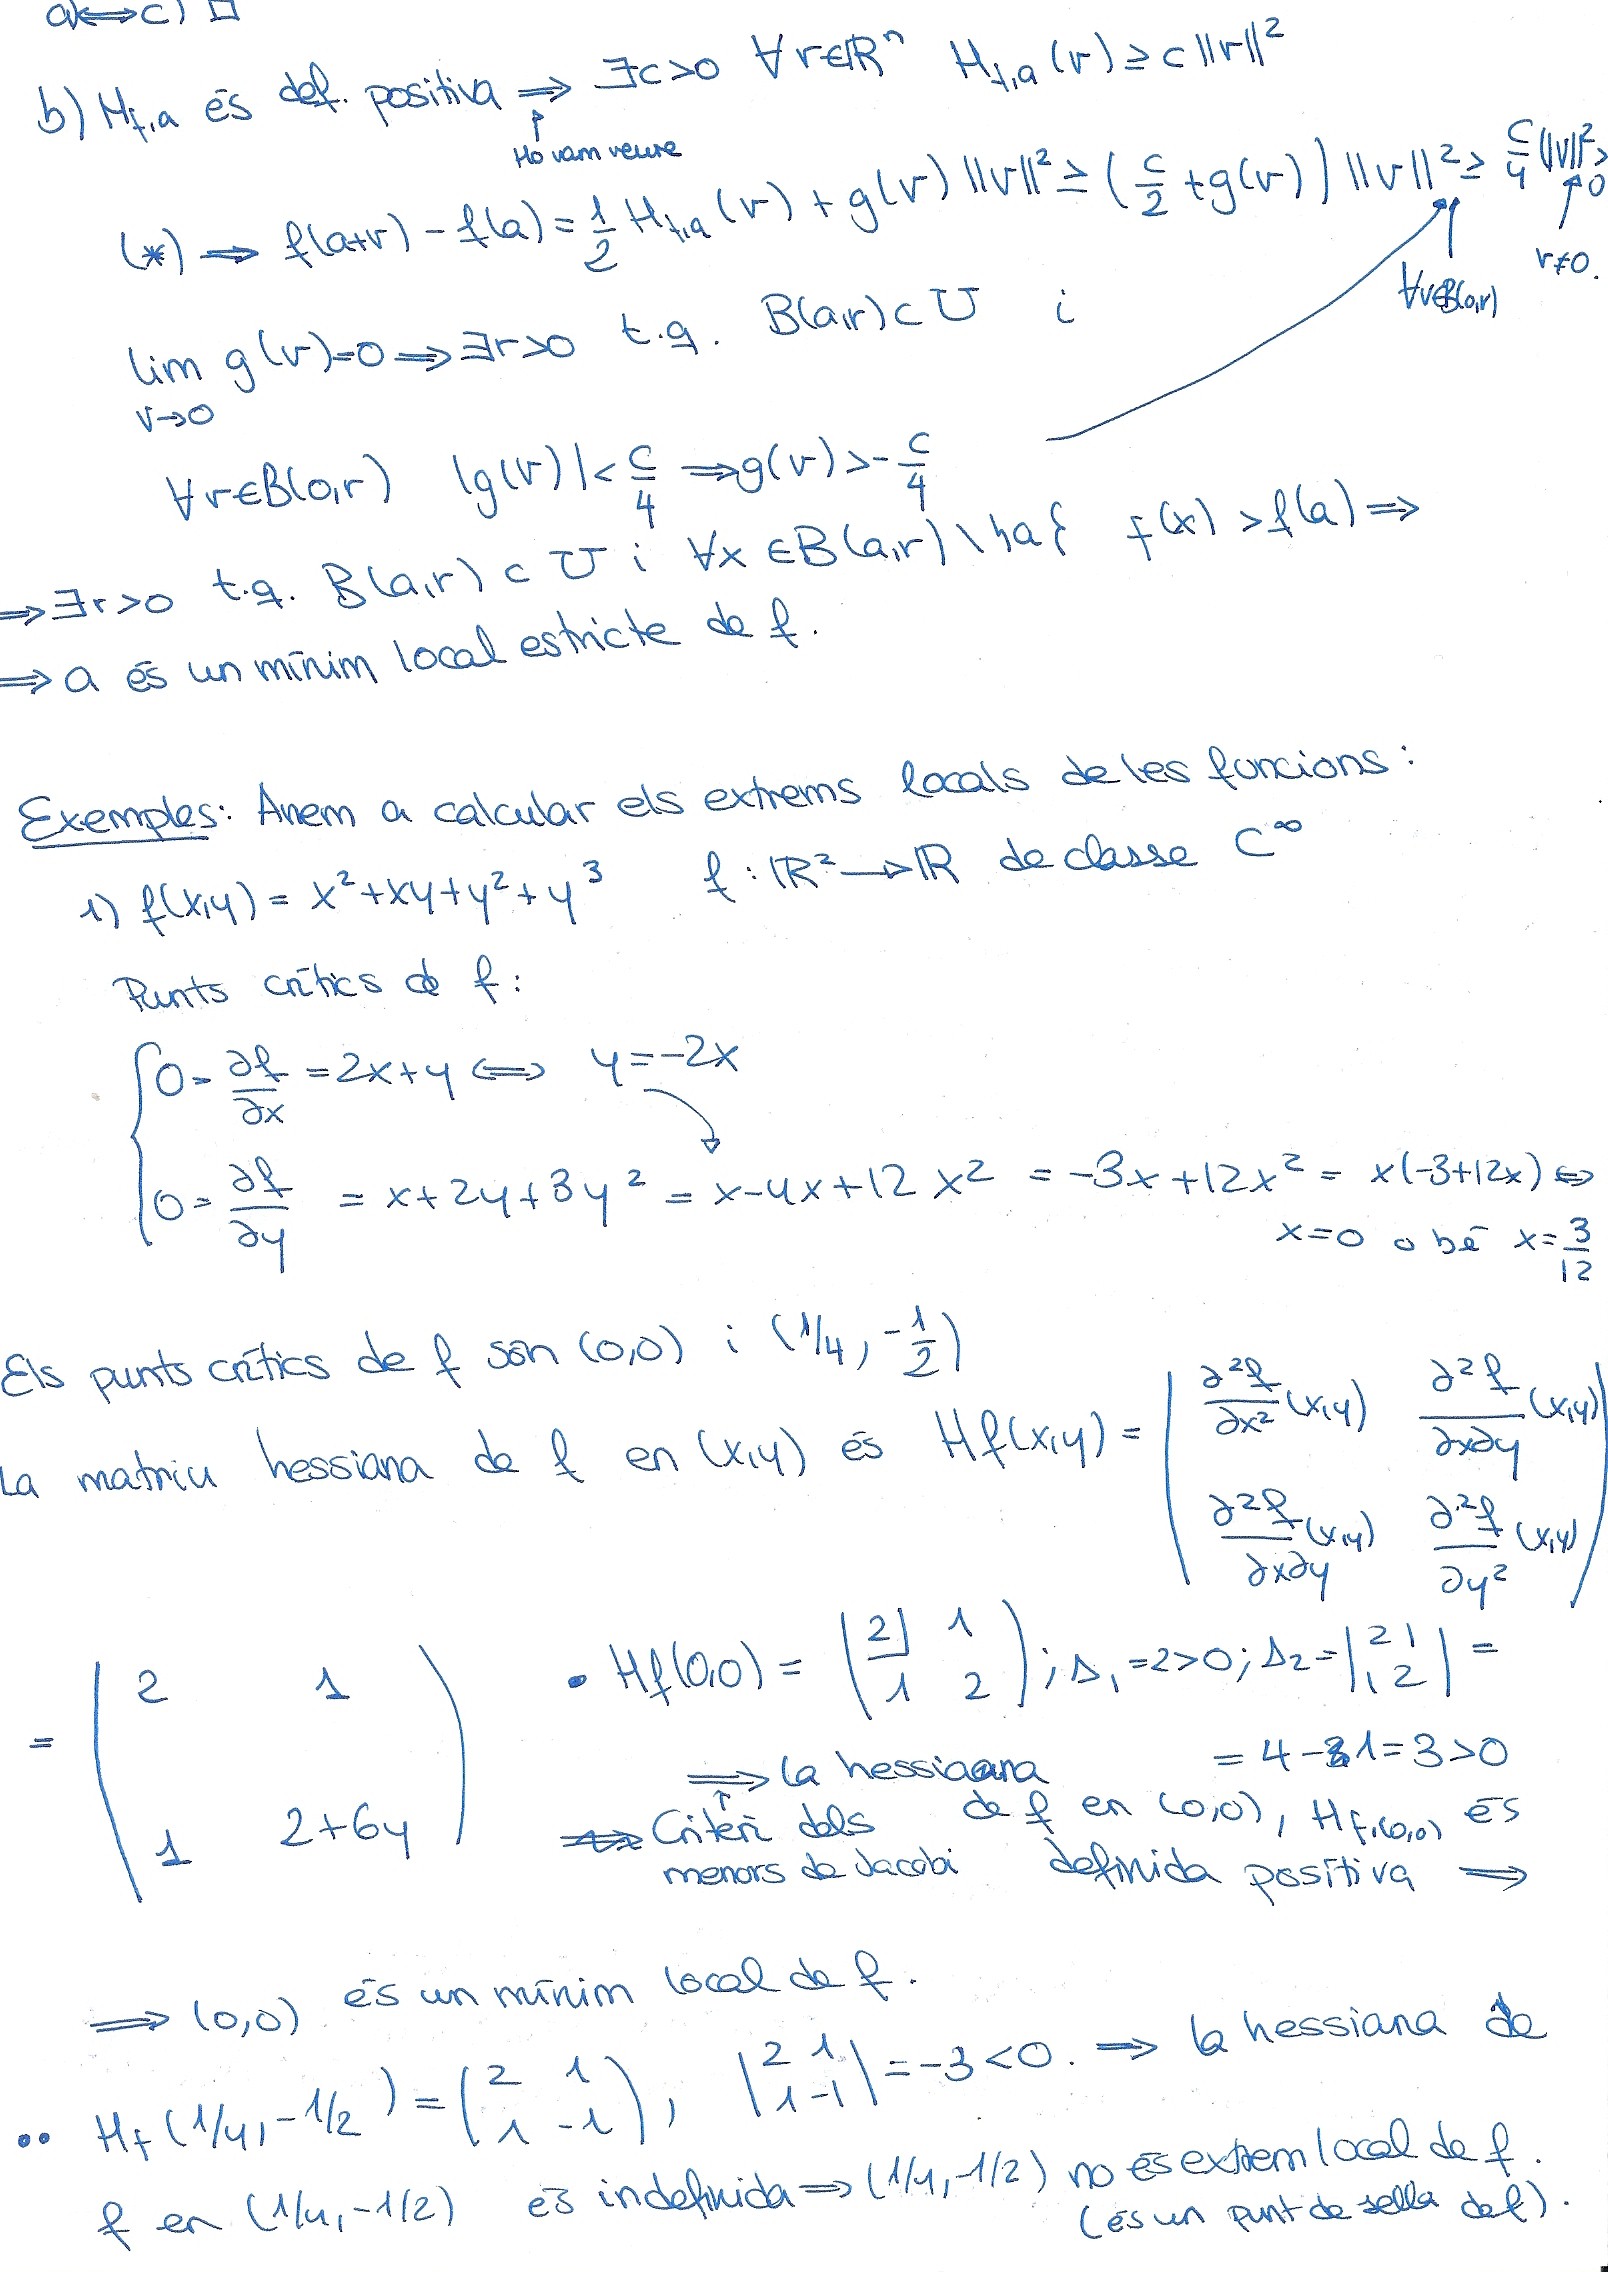 a)⟺c) □
b) H_{f,a} és def. positiva ⟹ ∃c>0 ∀v∈ℝⁿ H_{f,a}(v) ≥ c‖v‖²
↑
Ho vam veure
(*) ⟹ f(a+v) - f(a) = 1/2 H_{f,a}(v) + g(v)‖v‖² ≥ (c/2 + g(v))‖v‖² ≥ c/4 ‖v‖² > 0
∀v∈B(0,r) v≠0.
lim g(v)=0 ⟹ ∃r>0 t.q. B(a,r)⊂U i
v→0
∀v∈B(0,r) |g(v)| < c/4 ⟹ g(v) > -c/4
⟹ ∃r>0 t.q. B(a,r)⊂U i ∀x∈B(a,r)\{a} f(x)>f(a) ⟹
⟹ a és un mínim local estricte de f.
Exemples: Anem a calcular els extrems locals de les funcions:
1) f(x,y) = x²+xy+y²+y³ f: ℝ²→ℝ de classe C^∞
Punts crítics de f:
0 = ∂f/∂x = 2x+y ⟺ y=-2x
0 = ∂f/∂y = x+2y+3y² = x-4x+12x² = -3x+12x² = x(-3+12x) ⟺
x=0 o bé x=3/12
Els punts crítics de f són (0,0) i (1/4, -1/2)
La matriu hessiana de f en (x,y) és Hf(x,y) = ( ∂²f/∂x² (x,y) ∂²f/∂x∂y (x,y)
∂²f/∂x∂y (x,y) ∂²f/∂y² (x,y) )
= ( 2 1
1 2+6y )
• Hf(0,0) = ( 2 1
1 2 ); Δ₁=2>0; Δ₂ = | 2 1
1 2 | =
= 4-1=3>0
⟹ la hessiana de f en (0,0), H_{f,(0,0)} és definida positiva ⟹
↑
Criteri dels
menors de Jacobi
⟹ (0,0) és un mínim local de f.
•• Hf(1/4,-1/2) = ( 2 1
1 -1 ), | 2 1
1 -1 | = -3<0. ⟹ la hessiana de
f en (1/4,-1/2) és indefinida ⟹ (1/4,-1/2) no és extrem local de f.
(és un punt de sella de f).